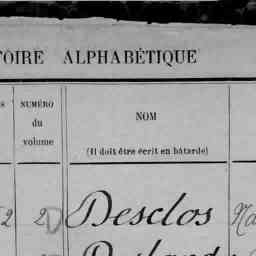 TOIRE ALPHABÉTIQUE
NUMÉRO
du
volume
NOM
(Il doit être écrit en bâtarde)
2 2 Desclos